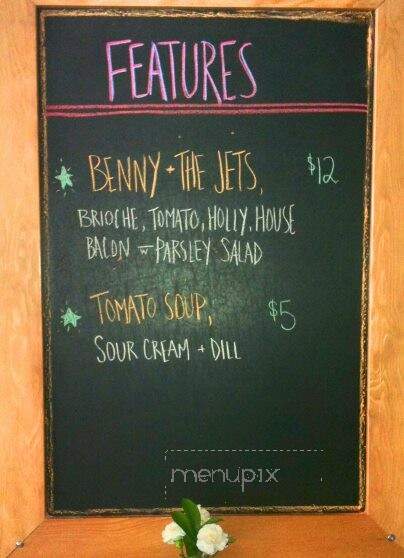 FEATURES
BENNY + THE JETS, $12
BRIOCHE, TOMATO, HOLLY, HOUSE
BACON w PARSLEY SALAD
TOMATO SOUP, $5
SOUR CREAM + DILL
menupix